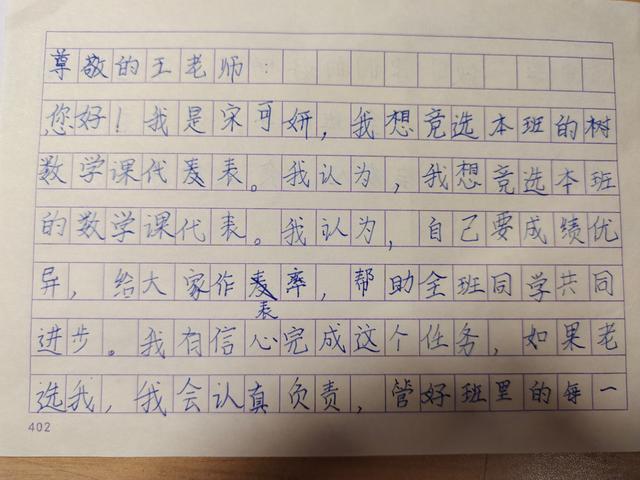 尊敬的王老师：
您好！我是宋可妍，我想竞选本班的树
数学课代表。我认为，我想竞选本班
的数学课代表。我认为，自己要成绩优
异，给大家作表率，帮助全班同学共同
进步。我有信心完成这个任务，如果老
选我，我会认真负责，管好班里的每一
402